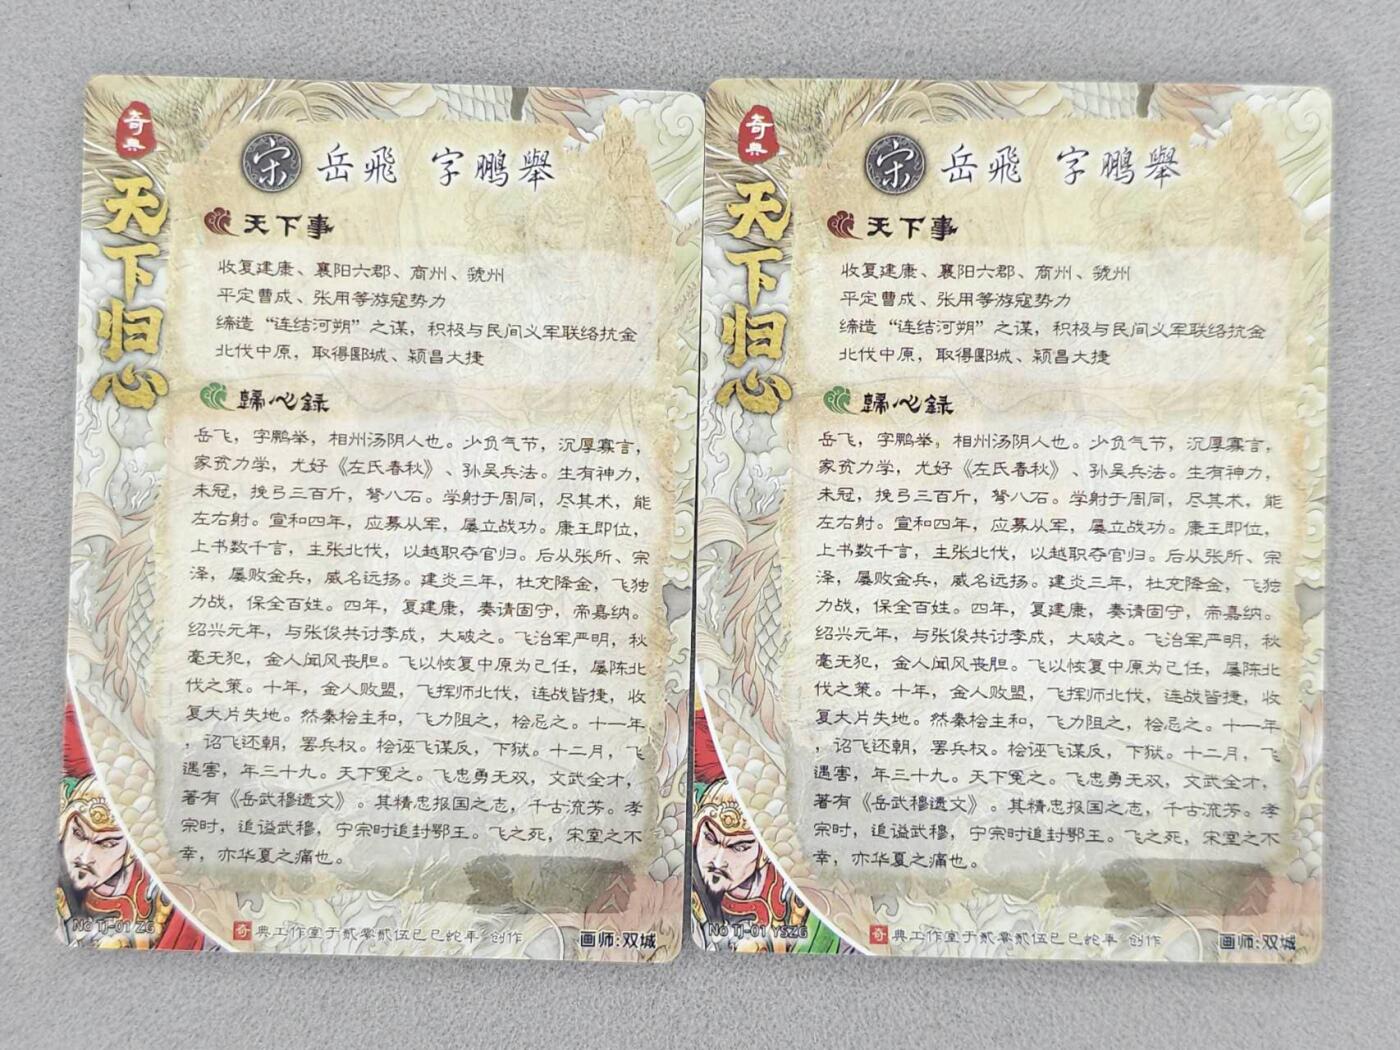 奇典
天下归心
宋 岳飛 字鵬舉
天下事
收复建康、襄阳六郡、商州、虢州
平定曹成、张用等游寇势力
缔造“连结河朔”之谋，积极与民间义军联络抗金
北伐中原，取得郾城、颍昌大捷
歸心録
岳飞，字鹏举，相州汤阴人也。少负气节，沉厚寡言，
家贫力学，尤好《左氏春秋》、孙吴兵法。生有神力，
未冠，挽弓三百斤，弩八石。学射于周同，尽其术，能
左右射。宣和四年，应募从军，屡立战功。康王即位，
上书数千言，主张北伐，以越职夺官归。后从张所、宗
泽，屡败金兵，威名远扬。建炎三年，杜充降金，飞独
力战，保全百姓。四年，复建康，奏请固守，帝嘉纳。
绍兴元年，与张俊共讨李成，大破之。飞治军严明，秋
毫无犯，金人闻风丧胆。飞以恢复中原为己任，屡陈北
伐之策。十年，金人败盟，飞挥师北伐，连战皆捷，收
复大片失地。然秦桧主和，飞力阻之，桧忌之。十一年
，诏飞还朝，罢兵权。桧诬飞谋反，下狱。十二月，飞
遇害，年三十九。天下冤之。飞忠勇无双，文武全才，
著有《岳武穆遗文》。其精忠报国之志，千古流芳。孝
宗时，追谥武穆，宁宗时追封鄂王。飞之死，宋室之不
幸，亦华夏之痛也。
No TJ-01 ZG
奇典工作室于贰零贰伍乙巳蛇年 创作
画师:双城
奇典
天下归心
宋 岳飛 字鵬舉
天下事
收复建康、襄阳六郡、商州、虢州
平定曹成、张用等游寇势力
缔造“连结河朔”之谋，积极与民间义军联络抗金
北伐中原，取得郾城、颍昌大捷
歸心録
岳飞，字鹏举，相州汤阴人也。少负气节，沉厚寡言，
家贫力学，尤好《左氏春秋》、孙吴兵法。生有神力，
未冠，挽弓三百斤，弩八石。学射于周同，尽其术，能
左右射。宣和四年，应募从军，屡立战功。康王即位，
上书数千言，主张北伐，以越职夺官归。后从张所、宗
泽，屡败金兵，威名远扬。建炎三年，杜充降金，飞独
力战，保全百姓。四年，复建康，奏请固守，帝嘉纳。
绍兴元年，与张俊共讨李成，大破之。飞治军严明，秋
毫无犯，金人闻风丧胆。飞以恢复中原为己任，屡陈北
伐之策。十年，金人败盟，飞挥师北伐，连战皆捷，收
复大片失地。然秦桧主和，飞力阻之，桧忌之。十一年
，诏飞还朝，罢兵权。桧诬飞谋反，下狱。十二月，飞
遇害，年三十九。天下冤之。飞忠勇无双，文武全才，
著有《岳武穆遗文》。其精忠报国之志，千古流芳。孝
宗时，追谥武穆，宁宗时追封鄂王。飞之死，宋室之不
幸，亦华夏之痛也。
No TJ-01 YSZG
奇典工作室于贰零贰伍乙巳蛇年 创作
画师:双城